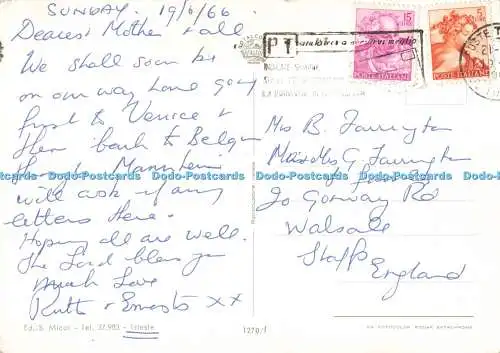 SUNDAY. 19/6/66
Dearest Mother + all
We shall soon be
on our way home going
first to Venice &
then back to Belgium
through Mannheim
will ask if any
letters there.
Hoping all are well.
The Lord bless you
Much Love
Ruth + Ernest xx
Ed. S. Micol - Tel. 37.983 - Trieste
1270/f
PT
15
5
POSTE ITALIANE
POSTE ITALIANE
Mrs B. Farrington
Misses G. Farrington
20 Gorway Rd
Walsall
Staffs
England
VERA FOTOCOLOR KODAK EKTACHROME
Dodo-Postcards Dodo-Postcards Dodo-Postcards Dodo-Postcards